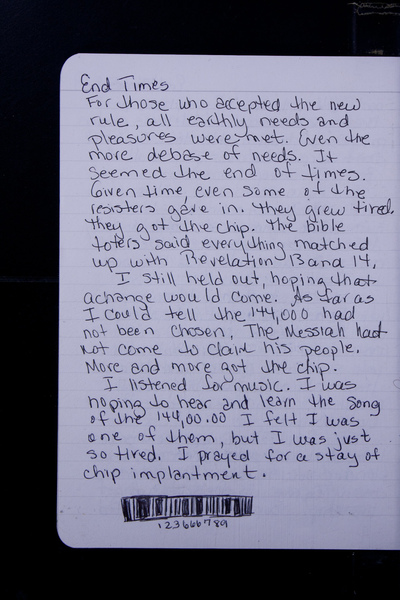 End Times
For those who accepted the new
rule, all earthly needs and
pleasures were met. Even the
more debase of needs. It
seemed the end of times.
Given time, even some of the
resisters gave in. They grew tired.
They got the chip. The bible
toters said everything matched
up with Revelation 13 and 14.
I still held out, hoping that
a change would come. As far as
I could tell the 144,000 had
not been chosen. The Messiah had
not come to claim his people.
More and more got the chip.
I listened for music. I was
hoping to hear and learn the song
of the 144,00.00 I felt I was
one of them, but I was just
so tired. I prayed for a stay of
chip implantment.
123666789